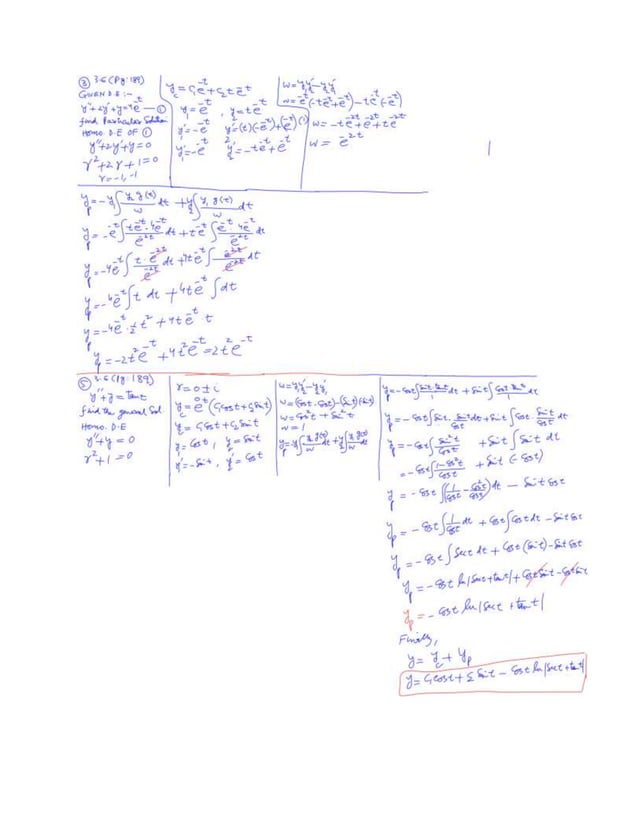 ③ 3.6 (Pg: 189)
GIVEN D.E :-
y''+2y'+y=4e^-t —①
find Particular Solution
Homo. D.E OF ①
y''+2y'+y=0
r²+2r+1=0
r=-1,-1
y_c = c₁e^-t + c₂te^-t
y₁=e^-t , y₂=te^-t
y₁'=-e^-t y₂'=(t)(-e^-t)+(e^-t)(1)
y₁'=-e^-t y₂'=-te^-t+e^-t
w=y₁y₂'-y₂y₁'
w=e^-t(-te^-t+e^-t)-te^-t(-e^-t)
w=-te^-2t+e^-2t+te^-2t
w= e^-2t
y_p=-y₁∫ y₂ g(t)/w dt + y₂∫ y₁ g(t)/w dt
y_p=-e^-t∫ te^-t·4e^-t/e^-2t dt + te^-t∫ e^-t·4e^-t/e^-2t dt
y_p=-4e^-t∫ t·e^-2t/e^-2t dt + 4te^-t∫ e^-2t/e^-2t dt
y_p=-4e^-t∫t dt + 4te^-t∫dt
y_p=-4e^-t·½t² + 4te^-t t
y_p=-2t²e^-t + 4t²e^-t=2t²e^-t
⑤ 3.6 (Pg: 189)
y''+y=Tant
find the general Sol.
Homo. D.E
y''+y=0
r²+1=0
r=0±i
y_c=e^0t(c₁Cost+c₂Sint)
y_c=c₁Cost+c₂Sint
y₁=Cost, y₂=Sint
y₁'=-Sint, y₂'=Cost
w=y₁y₂'-y₂y₁'
w=(Cost·Cost)-(Sint)(-Sint)
w=Cos²t+Sin²t
w=1
y_p=-y₁∫ y₂ g(t)/w dt + y₂∫ y₁ g(t)/w dt
y_p=-Cost∫ Sint·Tant/1 dt + Sint∫ Cost·Tant/1 dt
y_p=-Cost∫Sint·Sint/Cost dt + Sint∫Cost·Sint/Cost dt
y_p=-Cost∫ Sin²t/Cost + Sint∫Sint dt
=-Cost∫ 1-Cos²t/Cost + Sint(-Cost)
y_p=-Cost∫(1/Cost - Cos²t/Cost)dt - Sint Cost
y_p=-Cost∫ 1/Cost dt + Cost∫Cost dt - Sint Cost
y_p=-Cost∫Sect dt + Cost(Sint)-Sint Cost
y_p=-Cost ln|Sect+tant|+CostSint-CostSint
y_p=-Cost ln|Sect+tant|
Finally,
y=y_c+y_p
y=c₁Cost+c₂Sint-Cost ln|Sect+tant|